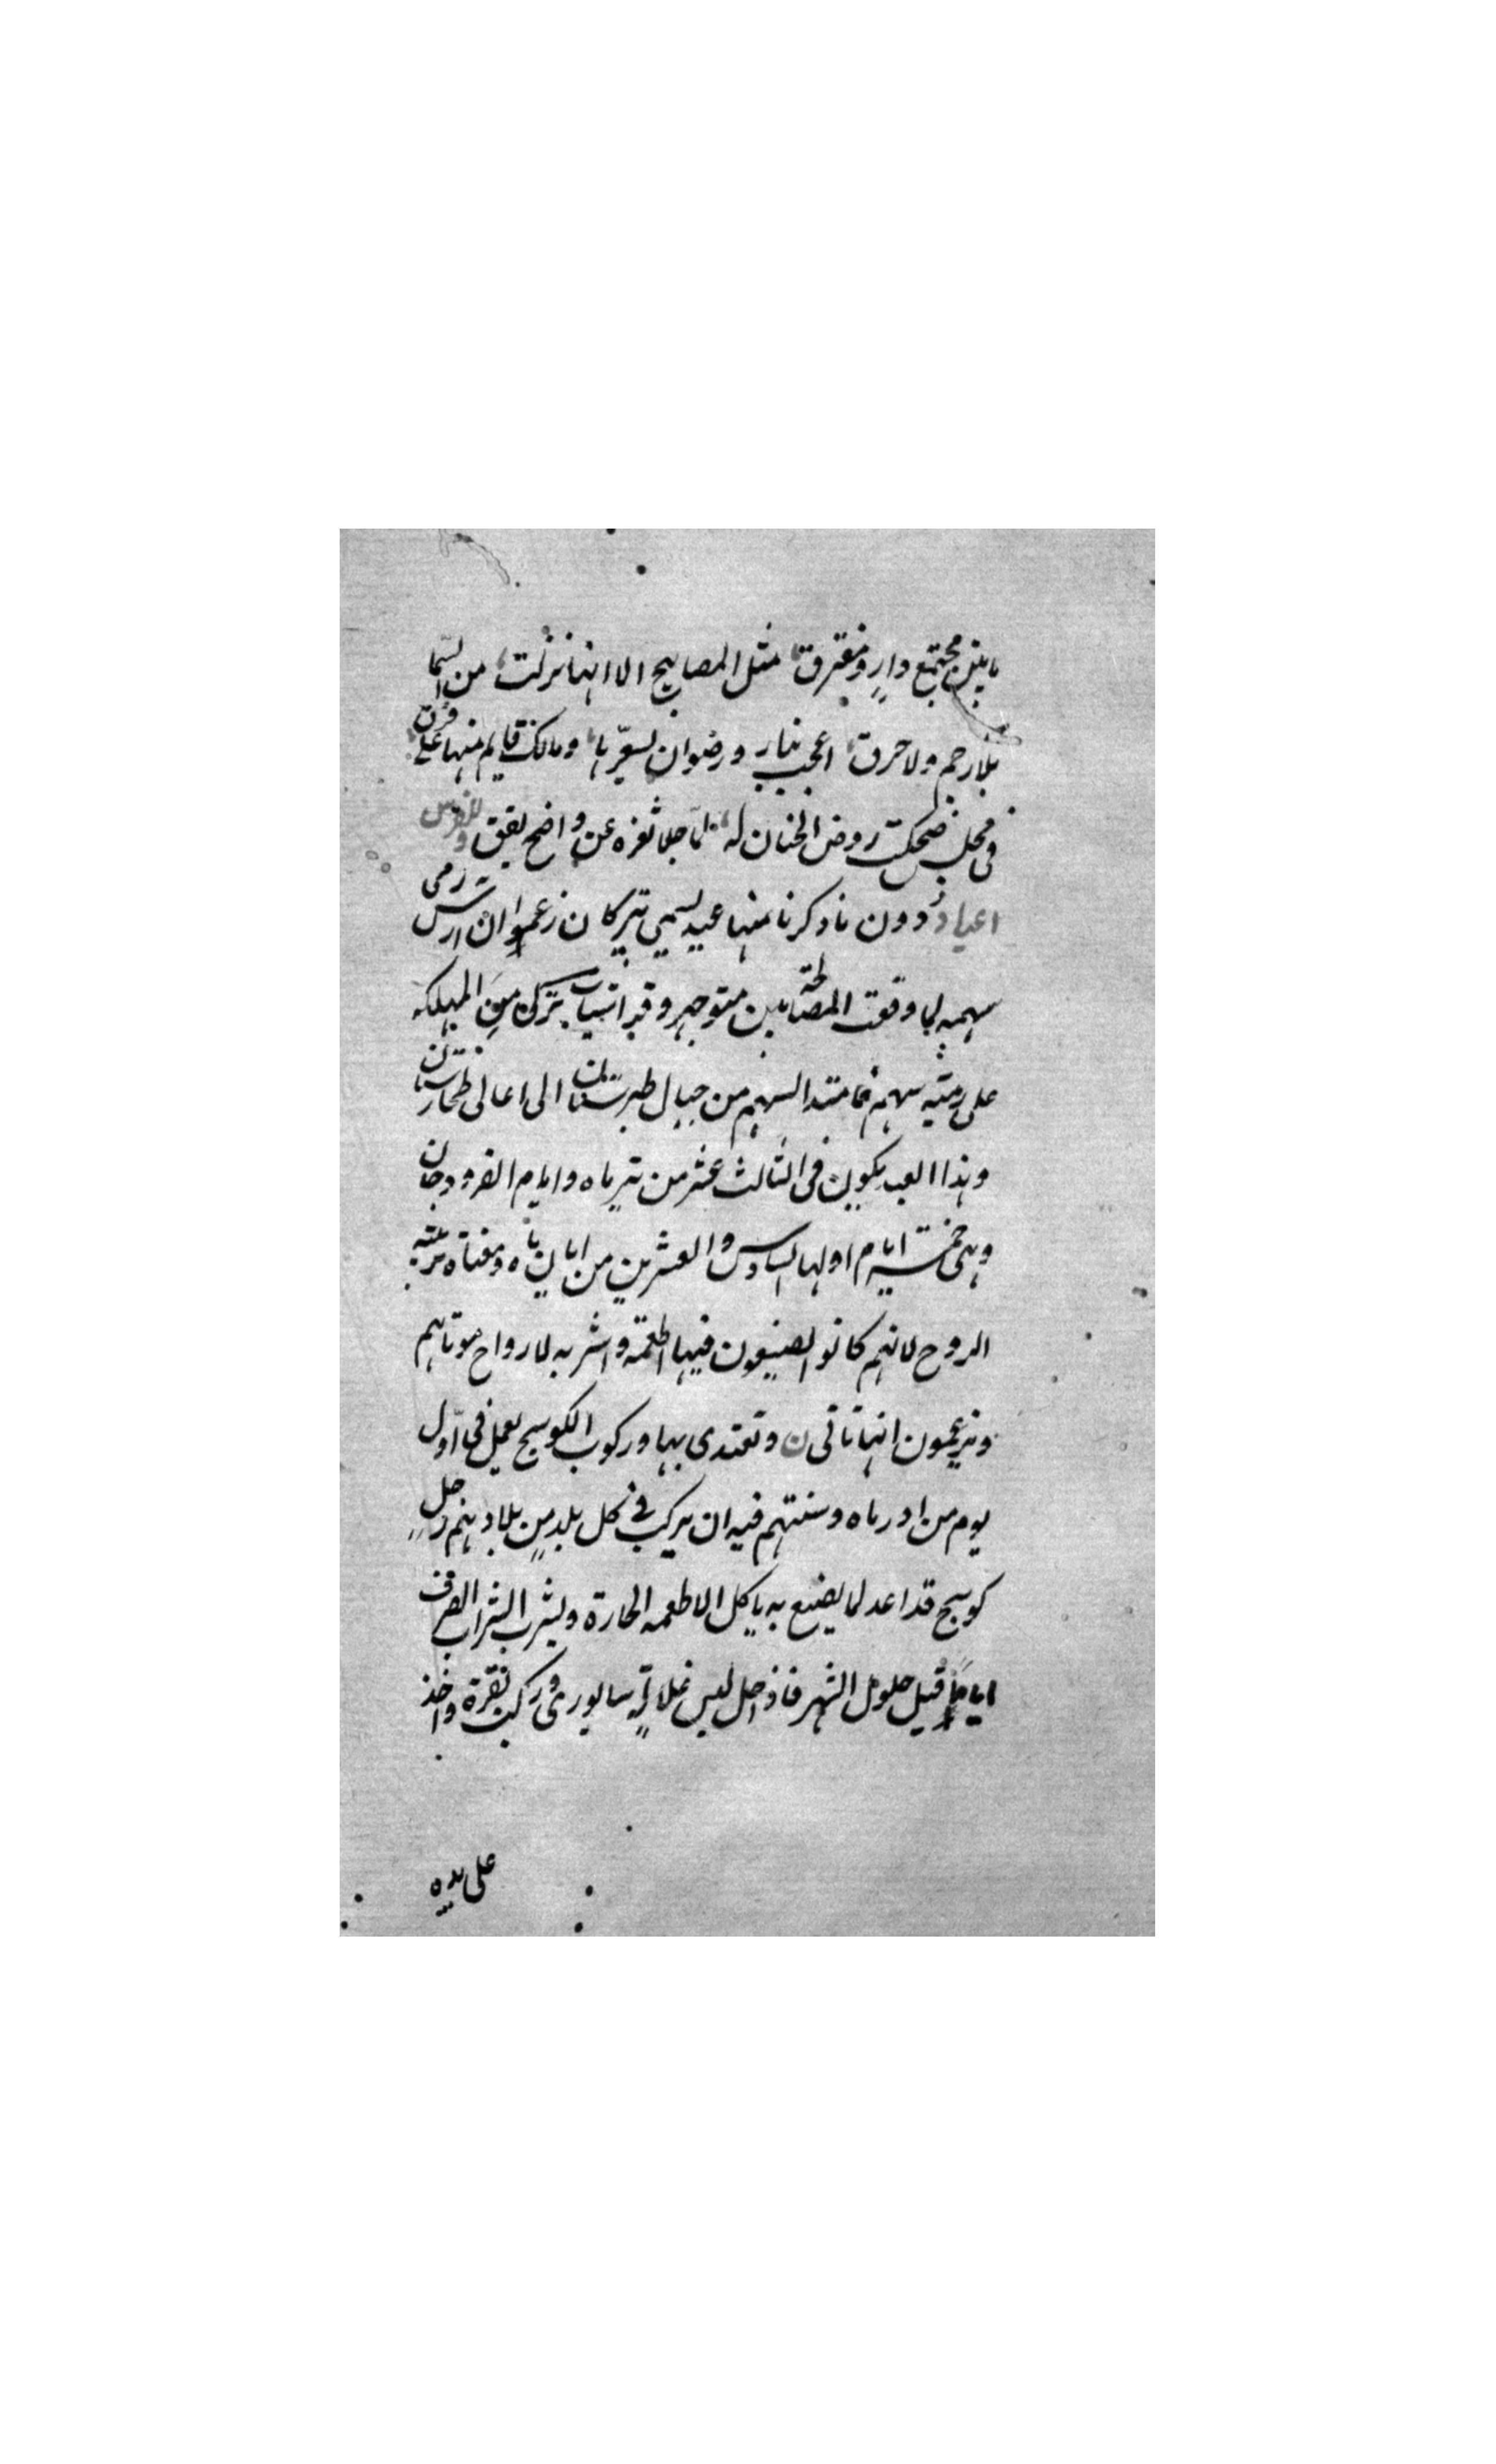 ما بين مجتمع وارٍ ومفترق مثل المصابيح الا انها نزلت من السما
بلا رجم ولا حرق اعجب بنار ورضوان يسعّرها ومالك قايم منها على فرق
فى مجلس ضحكت روض الجنان له لمّا جلا ثغره عن واضح يقق وللفرس
اعياد دون ما ذكرنا منها عيد يسمى تيركان زعموا ان ارس رمى
سهمه لما وقعت المصالحة بين منوجهر وافراسياب تركى من المملكة
على رمية سهم فامتد السهم من جبال طبرستان الى اعالى طخارستان
وهذا العيد يكون فى الثالث عشر من تيرماه وايام الفرودجان
وهى خمسة ايام اولها السادس والعشرين من ابان ماه ومعناه تربية
الروح لانهم كانوا يصنعون فيها اطعمة واشربه لارواح موتاهم
ويزعمون انها تاتى ن وتغتدى بها وركوب الكوسج يعمل فى اوّل
يوم من ادرماه وسنتهم فيه ان يركب فى كل بلد من بلادهم رجل
كوسج قد اعد لما يصنع به ياكل الاطعمه الحارة ويشرب الشراب الصرف
اياماً قبل حلول الشهر فاذا حل لبس غلالة سابورى وركب بقرة واخذ
على يده